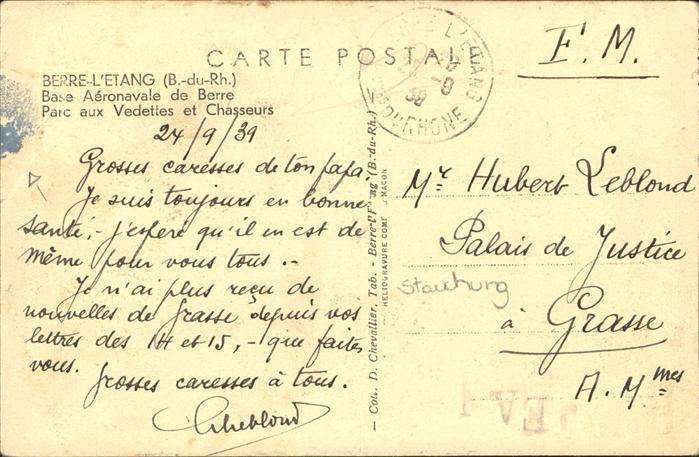 CARTE POSTALE
F. M.
BERRE-L'ETANG (B.-du-Rh.)
Base Aéronavale de Berre
Parc aux Vedettes et Chasseurs
24/9/39
Grosses caresses de ton papa
Je suis toujours en bonne
santé, - j'espère qu'il en est de
même pour vous tous. -
Je n'ai plus reçu de
nouvelles de Grasse, depuis vos
lettres des 14 et 15, - que faites
vous.
Grosses caresses à tous.
Leblond
L'ETANG
Bˢ DU RHONE
39
— Coll. D. Chevallier, Tab. - Berre-l'Etang (B.-du-Rh.)
HELIOGRAVURE COMBIER MACON
Mʳ Hubert Leblond
Palais de Justice
à Grasse
A. Mᵐᵉˢ